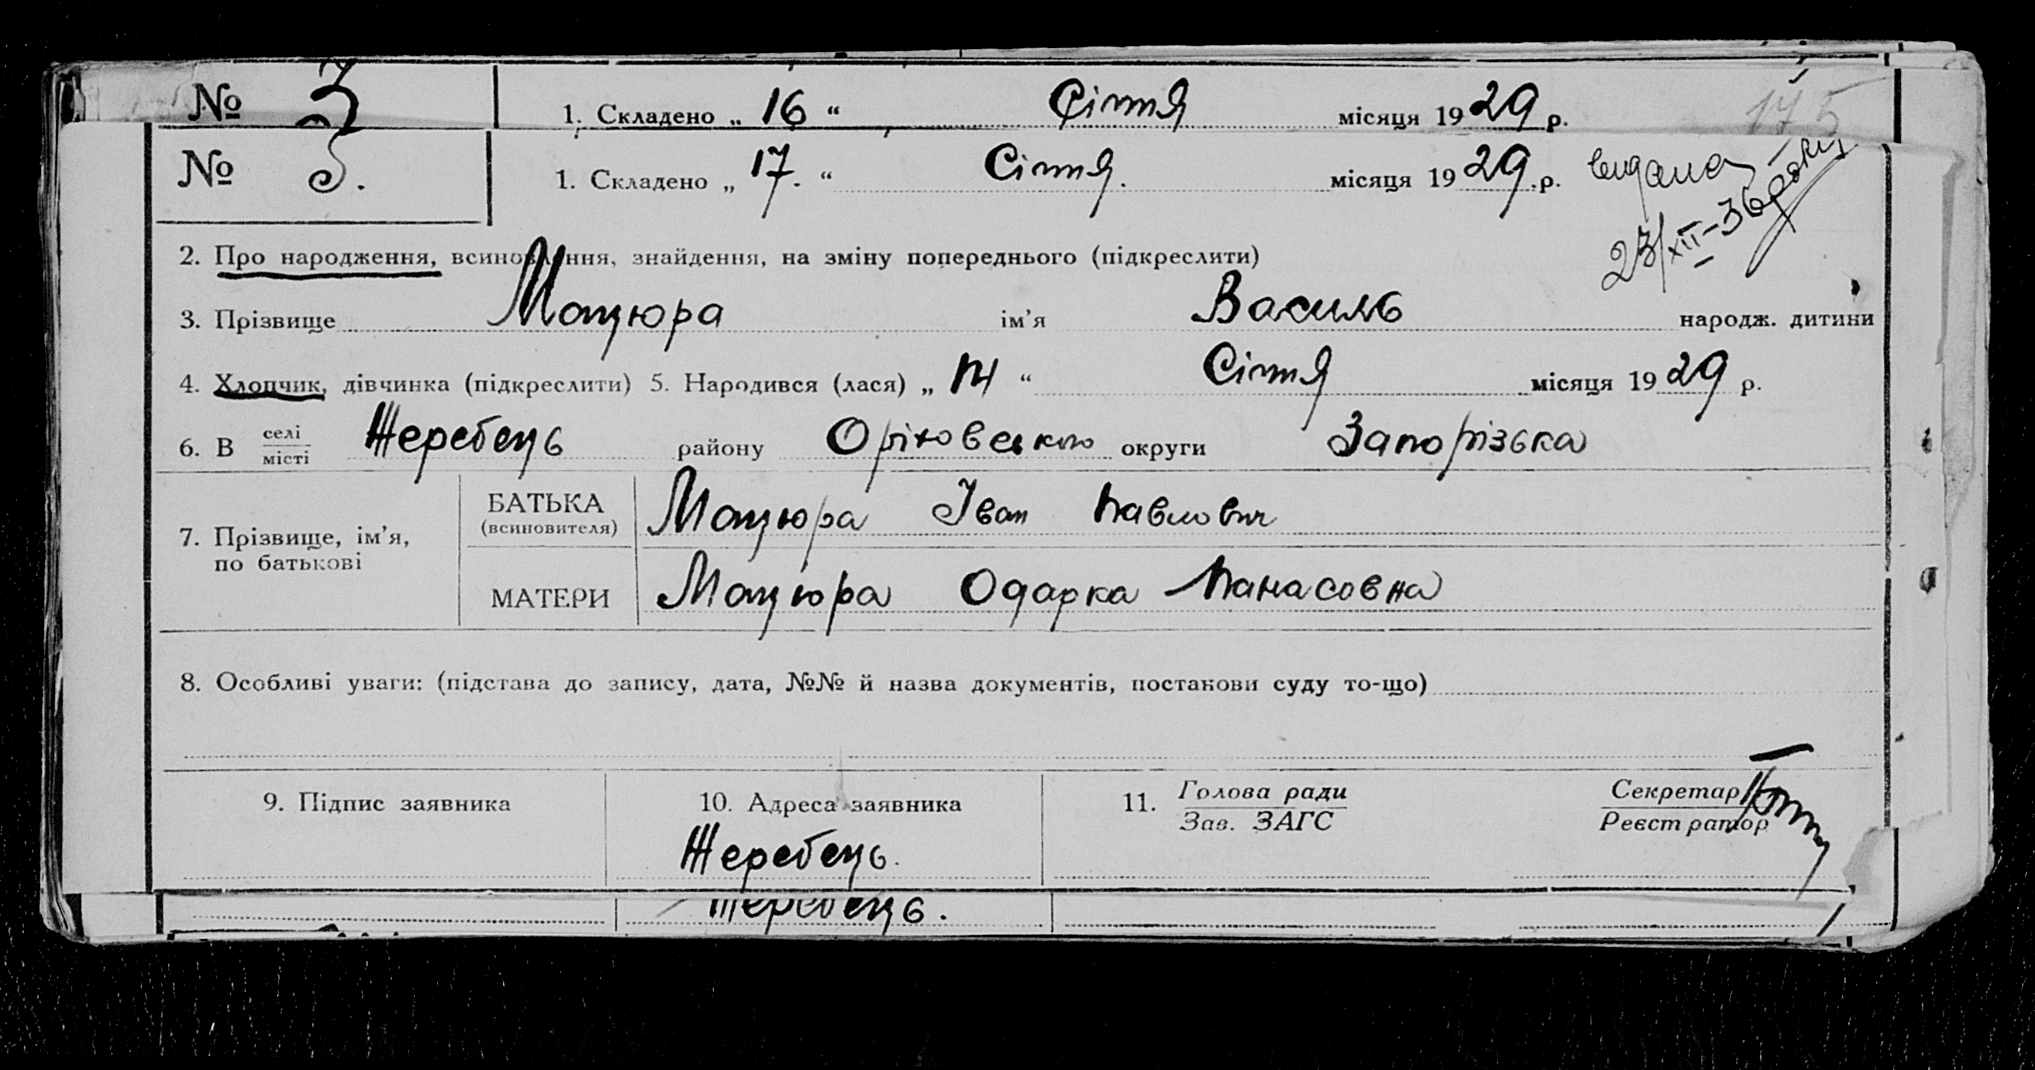 № 3 1. Складено „ 16 “ Січня місяця 1929 р.
175
№ 5. 1. Складено „ 17. “ Січня. місяця 1929.р.
видана
23/XII-36 року
2. Про народження, всиновлення, знайдення, на зміну попереднього (підкреслити)
3. Прізвище Мацюра ім’я Василь народж. дитини
4. Хлопчик, дівчинка (підкреслити) 5. Народився (лася) „ 14 “ Січня місяця 1929 р.
6. В селі місті Жеребець району Оріховського округи Запорізька
7. Прізвище, ім’я, по батькові
БАТЬКА (всиновителя) Мацюра Іван Павлович
МАТЕРИ Мацюра Одарка Панасовна
8. Особливі уваги: (підстава до запису, дата, №№ й назва документів, постанови суду то-що)
9. Підпис заявника 10. Адреса заявника 11. Голова ради Зав. ЗАГС Секретар Реєстратор
Жеребець.
Жеребець.